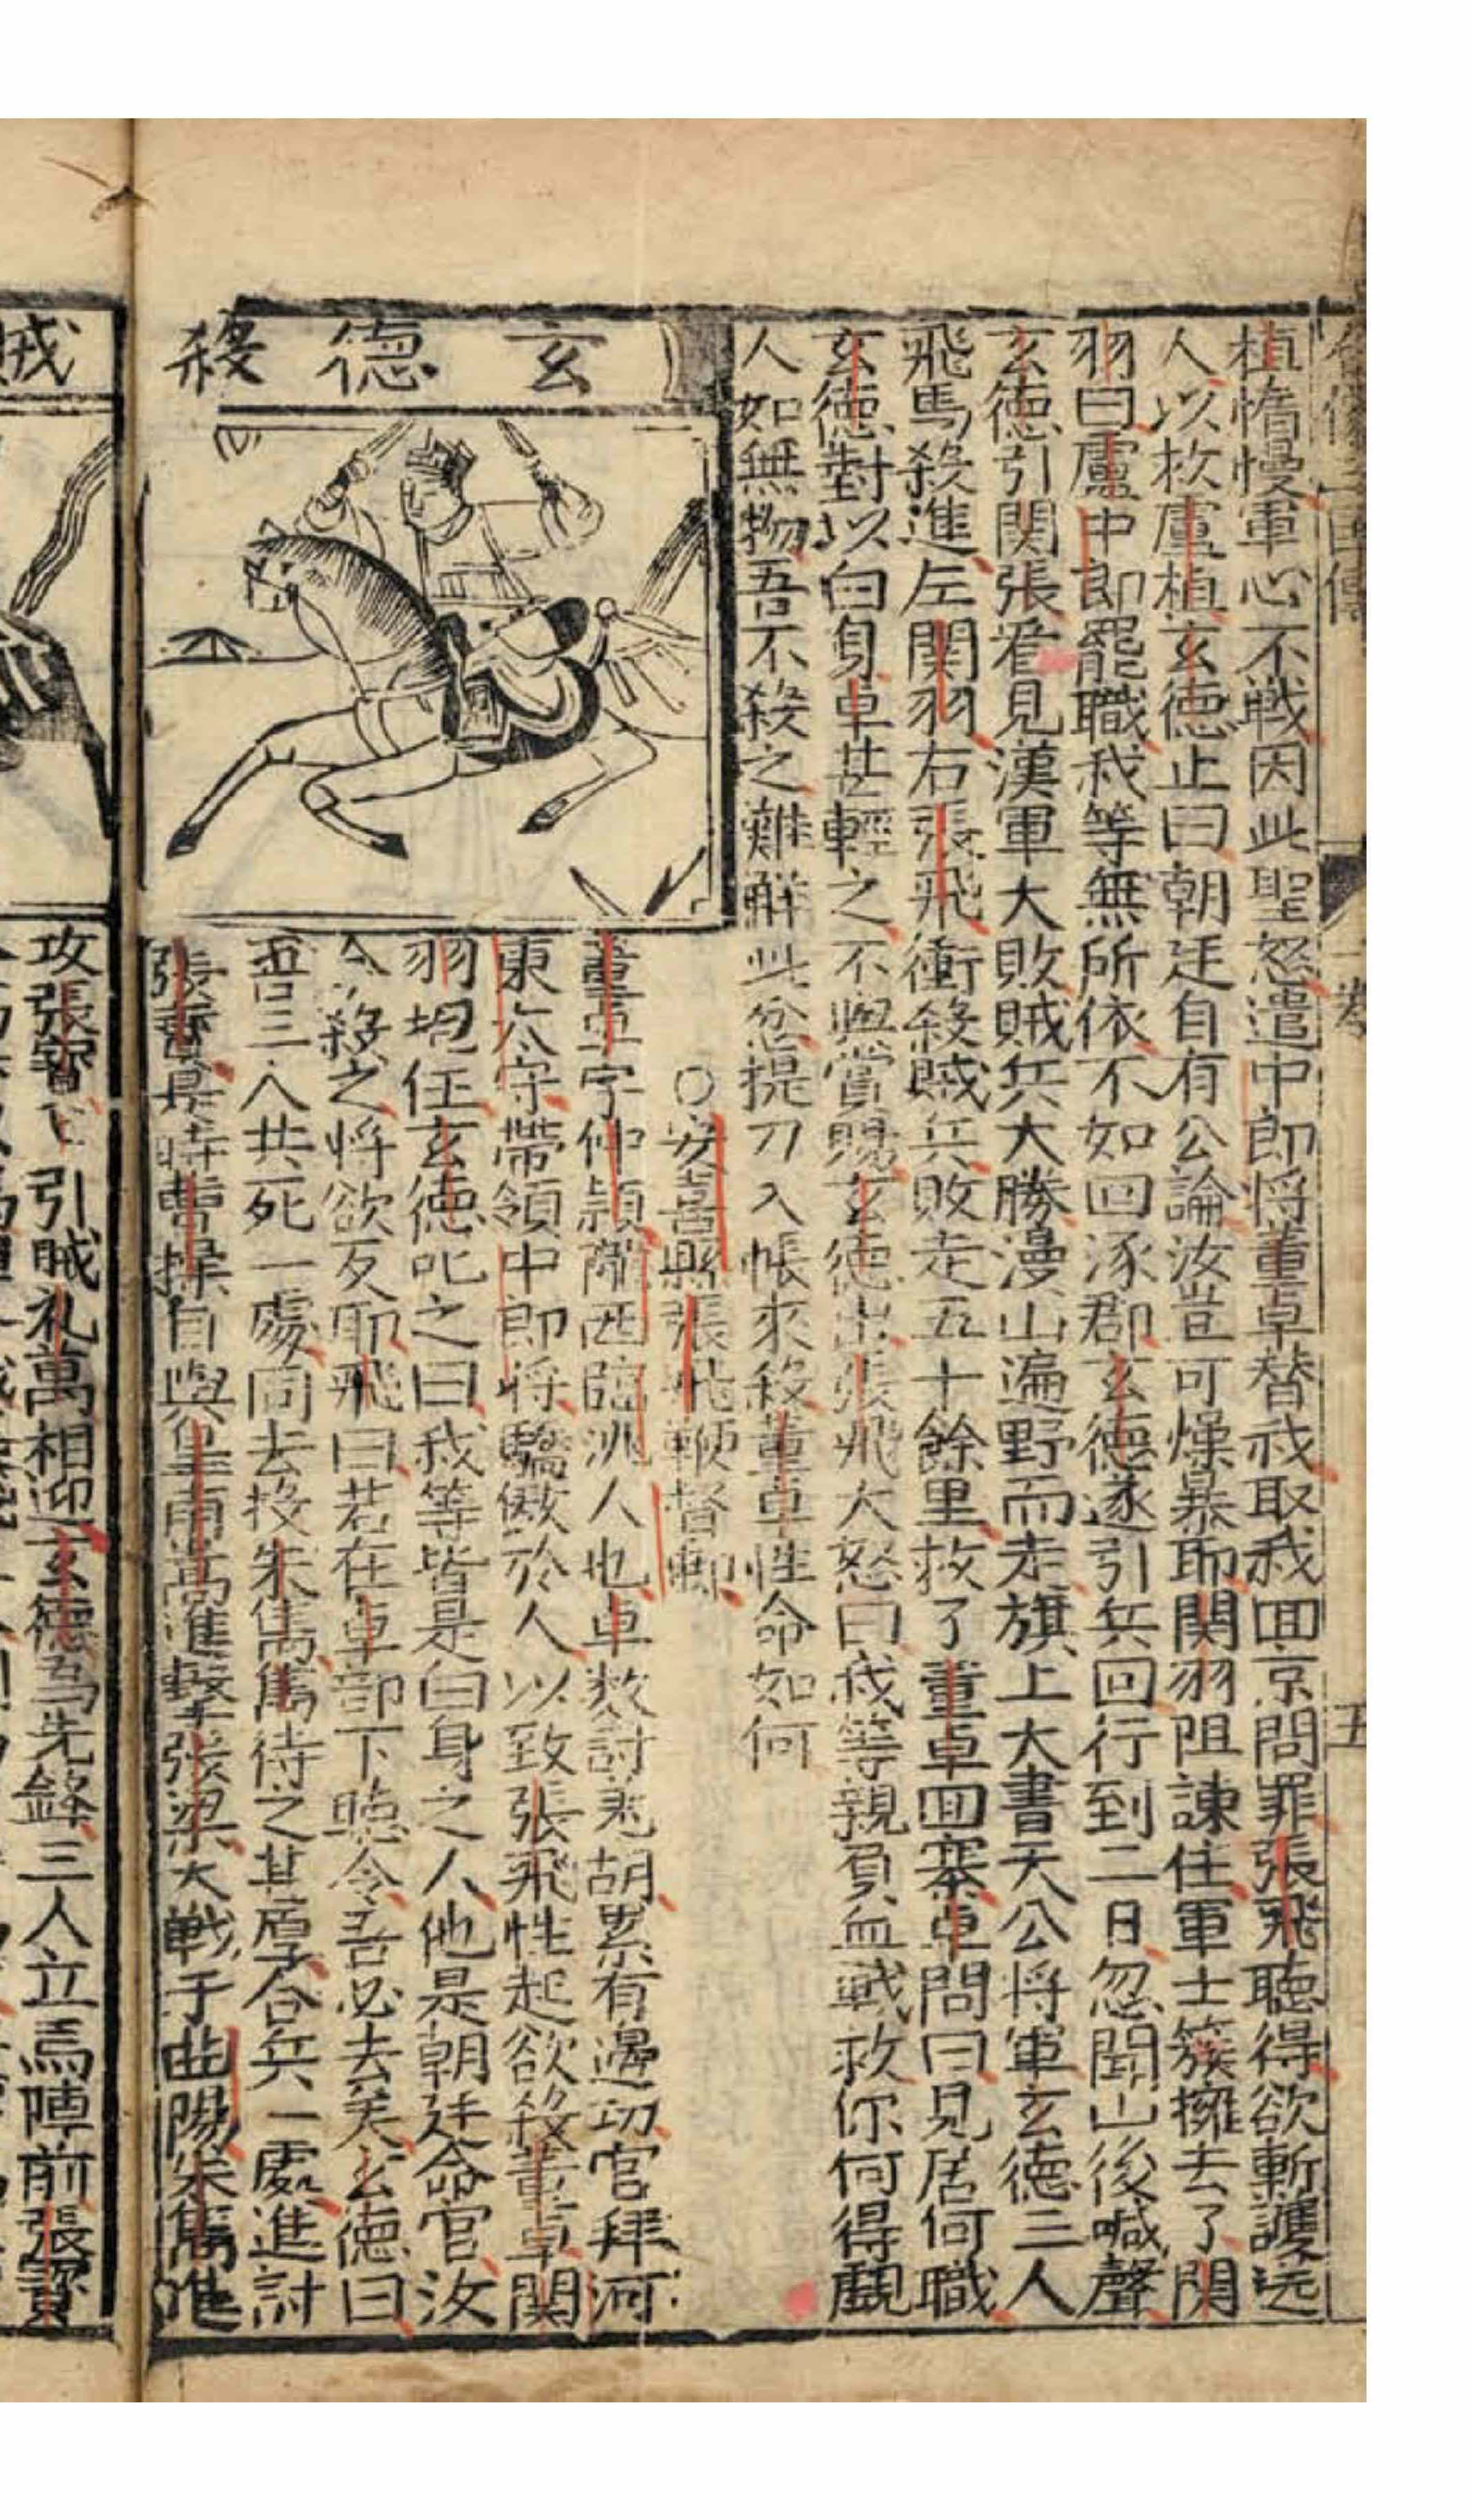 植惰慢軍心不戰因此聖怒遣中郎將董卓替我取我囬京問罪張飛聽得欲斬護送
人以救盧植玄德止曰朝廷自有公論汝豈可燥暴耶関羽阻諌住軍士簇擁去了関
羽曰盧中郎罷職我等無所依不如回涿郡玄德遂引兵回行到二日忽聞山後喊聲
玄德引関張看見漢軍大敗賊兵大勝漫山遍野而走旗上大書天公将軍玄德三人
飛馬殺進左関羽右張飛衝殺賊兵敗走五十餘里救了董卓囬寨卓問曰見居何職
玄德對以白身卓甚輕之不與賞賜玄德出張飛大怒曰我等親負血戰救你何得覷
人如無物吾不殺之難觧此忿提刀入帳來殺董卓性命如何
○安喜縣張飛鞭督郵
玄德殺
董卓字仲頴隴西臨洮人也卓数討羌胡累有邉功官拜河
東太守帶領中郎将驕傲於人以致張飛性起欲殺董卓関
羽把住玄德叱之曰我等皆是白身之人他是朝廷命官汝
今殺之将欲反耶飛曰若在卓部下聴令吾必去矣玄德曰
吾三人共死一處同去投朱雋雋待之甚厚合兵一處進討
張寳是時曹操自與皇甫嵩進擊張梁大戰于曲陽朱雋進
賊
攻張寳 引賊礼萬相迎玄德爲先鋒三人立馬陣前張寳